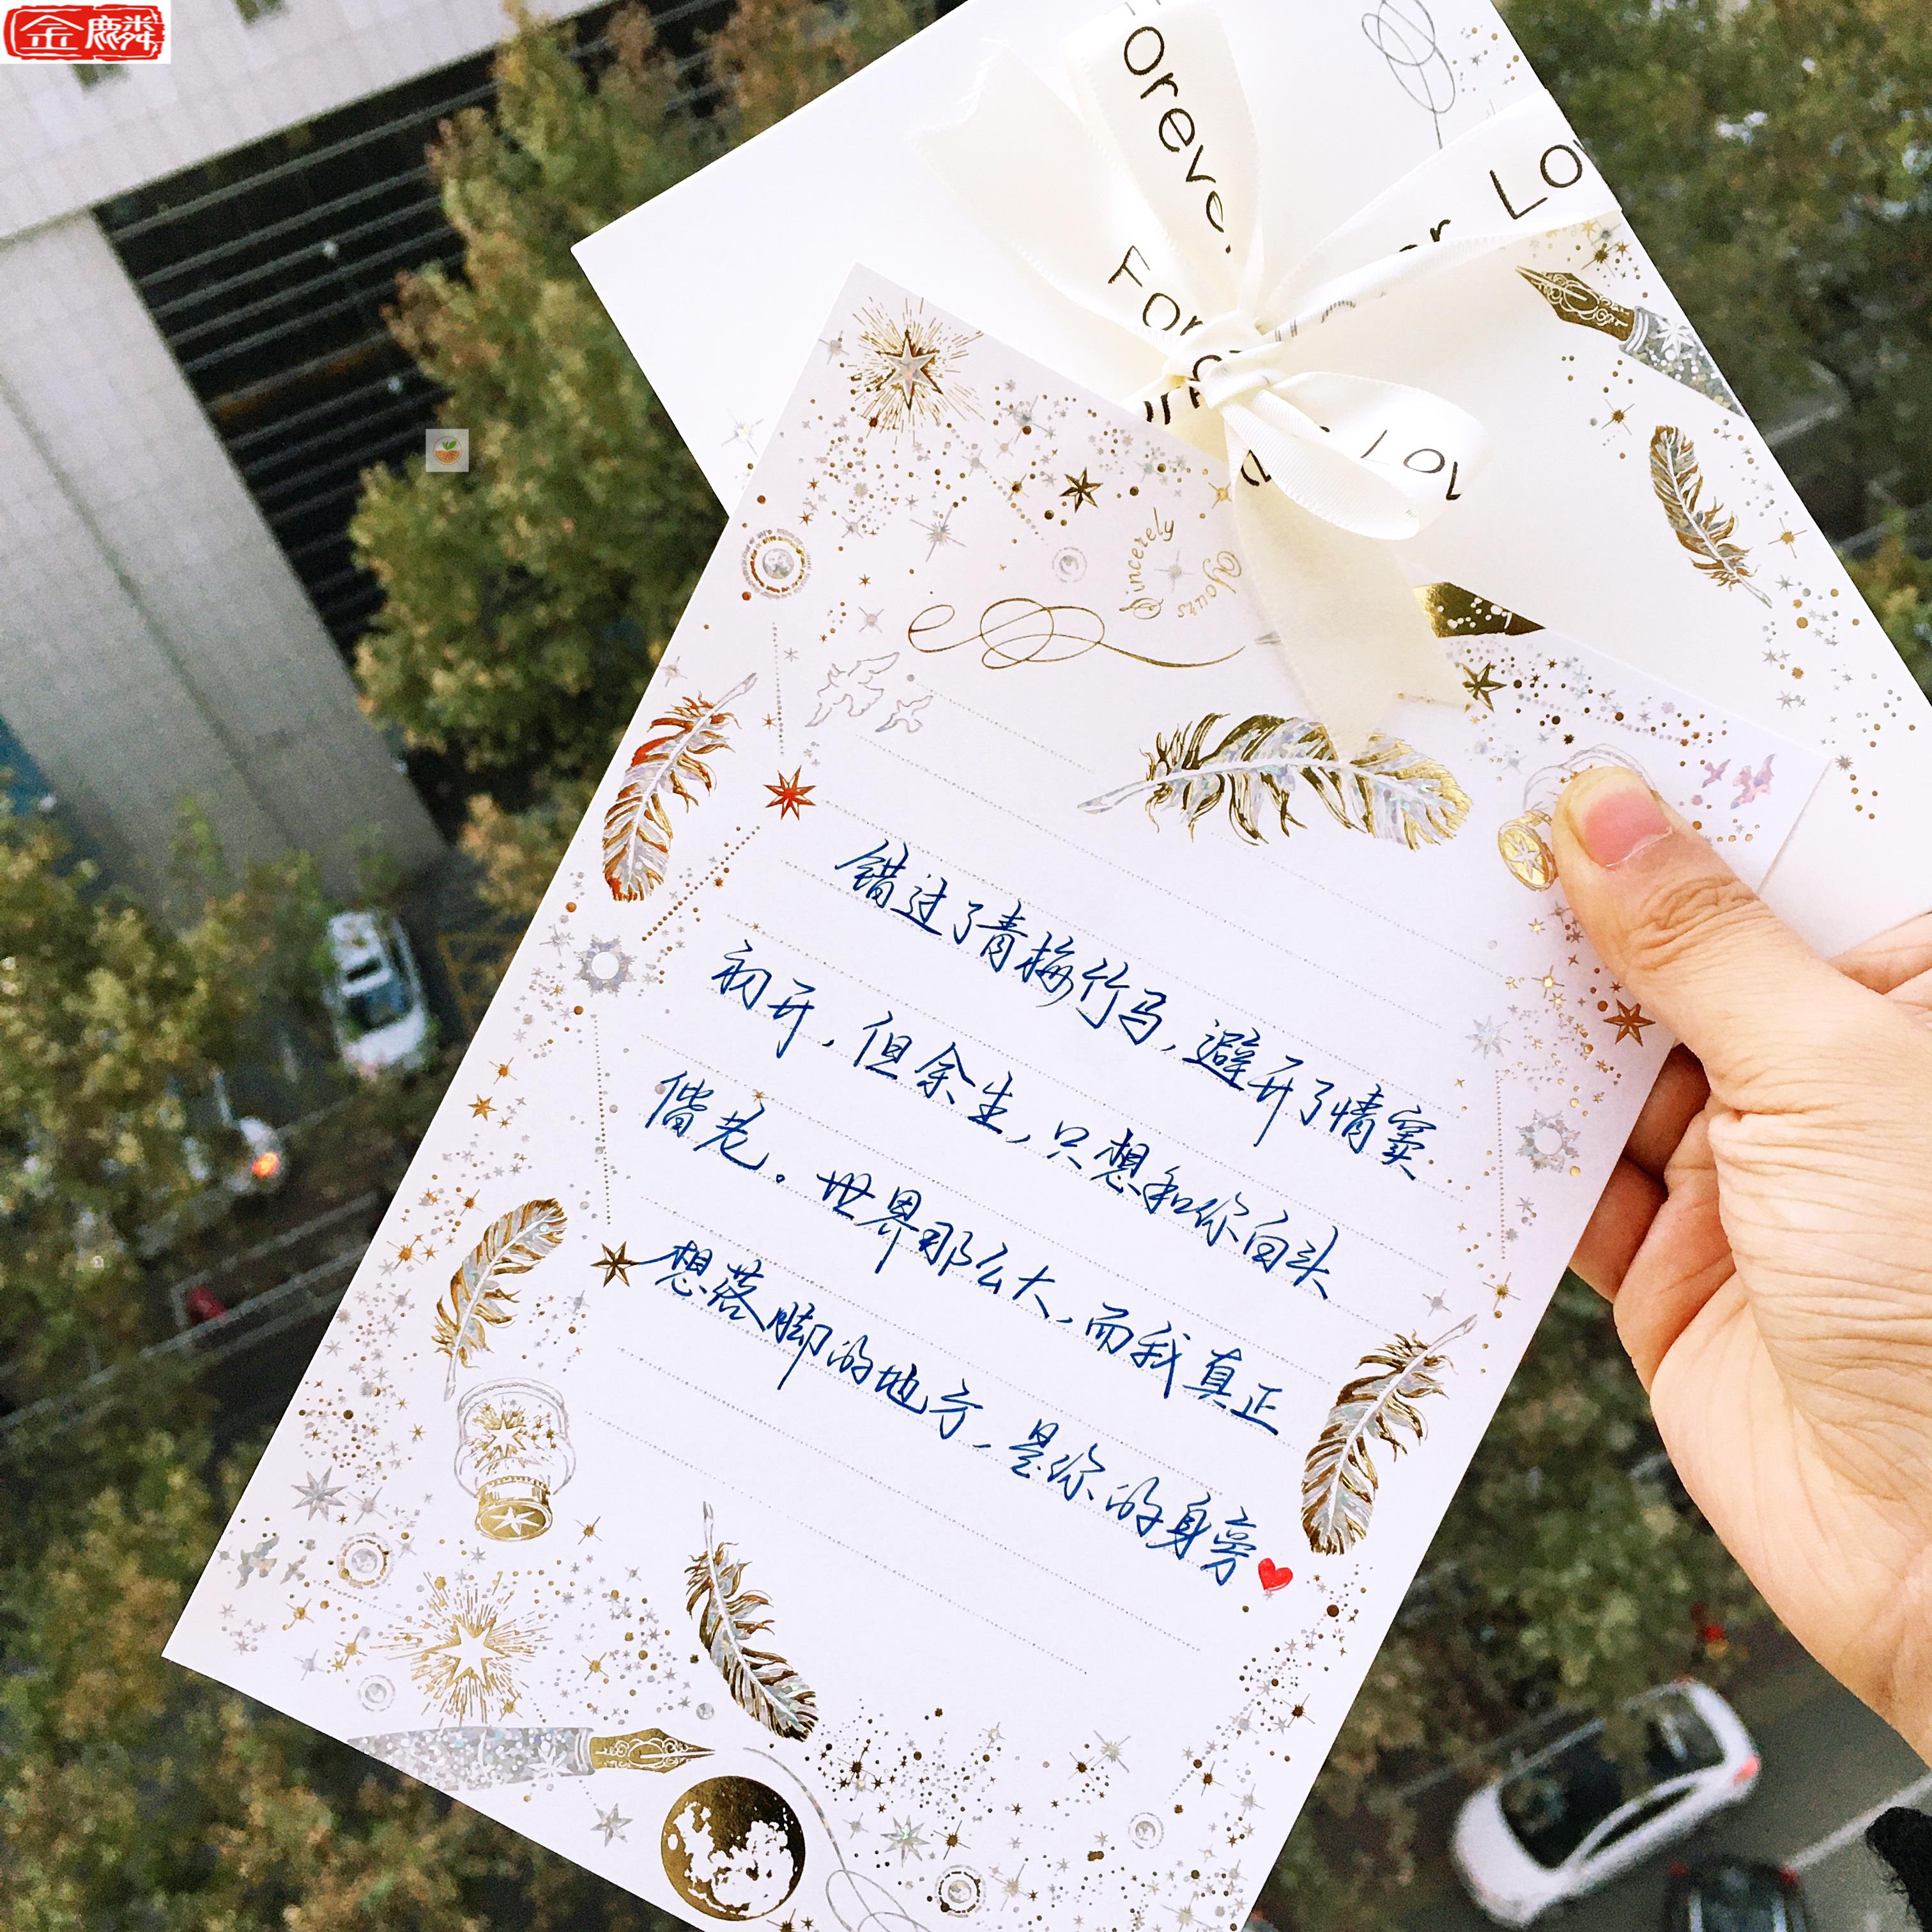 金麟
Forever
Forever Lo
Lov
Sincerely
Yours
错过了青梅竹马，避开了情窦
初开，但余生，只想和你白头
偕老。世界那么大，而我真正
想落脚的地方，是你的身旁